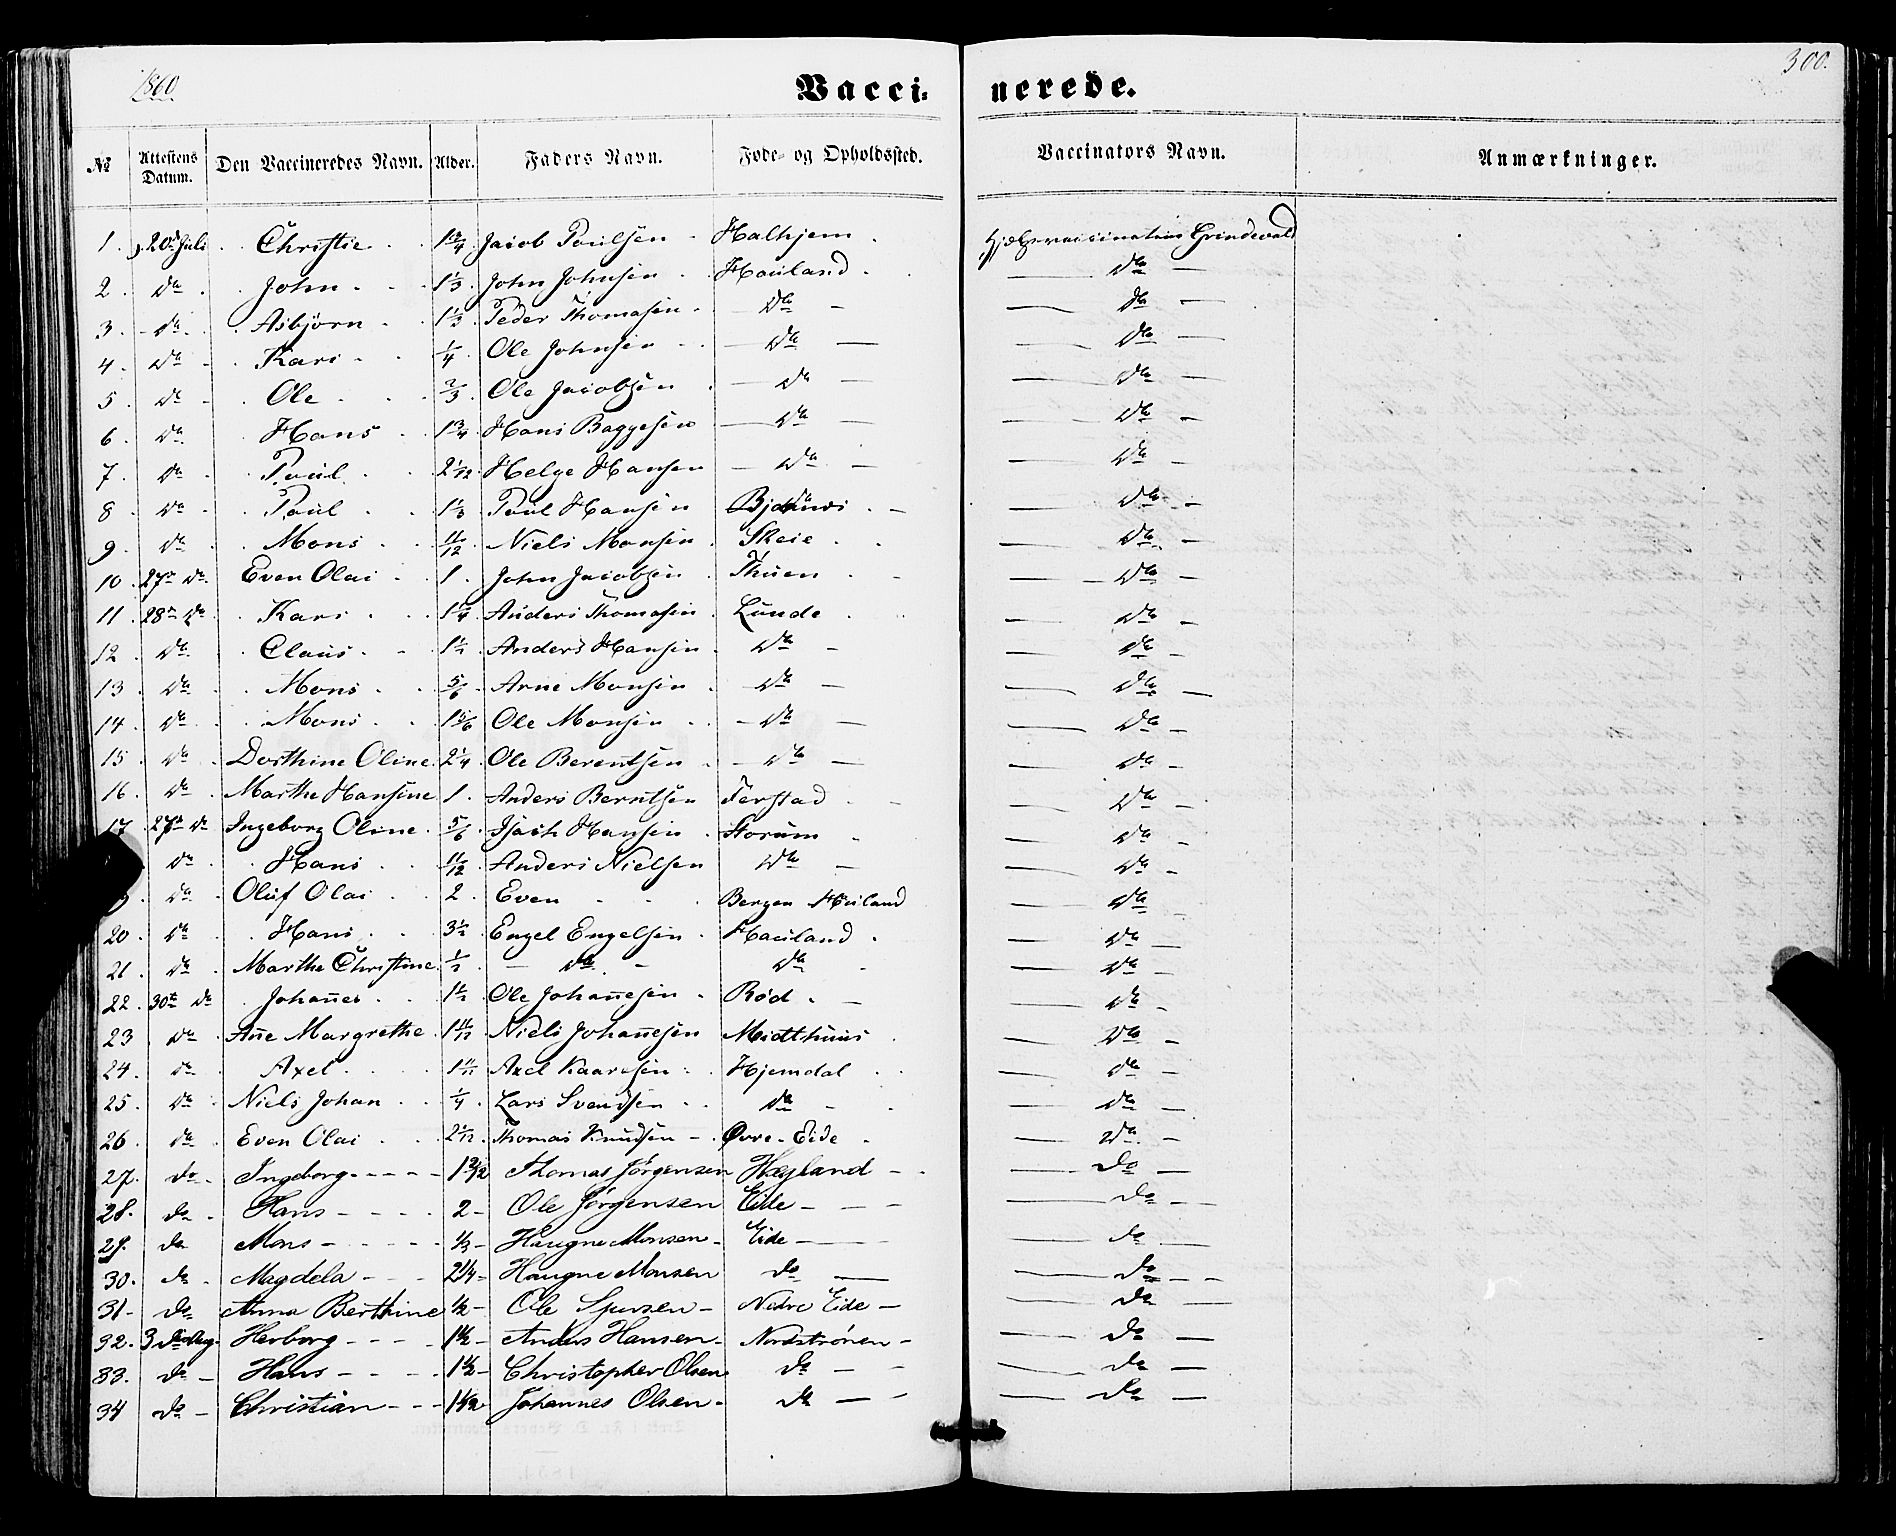 1860
300.
Vaccinerede.
No | Attestens Datum. | Den Vaccineredes Navn. | Alder. | Faders Navn. | Føde- og Opholdssted. | Vaccinators Navn. | Anmærkninger.
1. 20de Juli Christie 1 3/4 Jacob Poulsen Halhjem Hjælpevaccinatrice Grindevold
2. do John 1 1/3 John Johnsen Hauland do
3. do Asbjörn 1 1/3 Peder Thomasen do do
4. do Kari 1/4 Ole Johnsen do do
5. do Ole 2/3 Ole Jacobsen do do
6. do Hans 1 3/4 Hans Baggesen do do
7. do Poul 2 1/12 Helge Hansen do do
8. do Poul 1 1/3 Poul Hansen do do
9. do Mons 11/12 Niels Monsen Skeie do
10. 27de do Even Olai 1. John Jacobsen Thuen do
11. 28de do Kari 1 1/4 Anders Thomasen Lunde do
12. do Claus 1 1/2 Anders Hansen do do
13. do Mons 5/6 Arne Monsen do do
14. do Mons 1 5/6 Ole Monsen do do
15. do Dorthine Oline 2 1/4 Ole Berentsen do do
16. do Marthe Hansine 1. Anders Berntsen Ferstad do
17. 27de do Ingeborg Oline 5/6 Isach Hansen Storum do
do Hans 11/12 Anders Nielsen do do
9. do Oluf Olai 2 Even Bergen Hauland do
20. do Hans 3 1/2 Engel Engelsen Hauland do
21. do Marthe Christine 1/2 do do do
22. 30te do Johañes 1 1/2 Ole Johañesen Röd do
23. do Añe Margrethe 1 11/12 Niels Johañesen Midthuus do
24. do Axel 1 11/12 Axel Kaaresen Hjemdal do
25. do Niels Johan 1/4 Lars Svendsen do do
26. do Even Olai 2 1/12 Thomas Knudsen Øvre-Eide do
27. do Ingeborg 1 2/12 Thomas Jörgensen Høyland do
28. do Hans 2 Ole Jörgensen Eide do
29. do Mons 1/3 Haugne Monsen Eide do
30. do Magdela 2 1/4 Haugne Monsen do do
31. do Anna Berthine 1/2 Ole Sjursen Nedre Eide do
32. 3die Aug. Herborg 1 1/2 Anders Hansen Nordströnen do
33. do Hans 1 1/2 Christopher Olsen do do
34 do Christian 1 1/12 Johannes Olsen do do